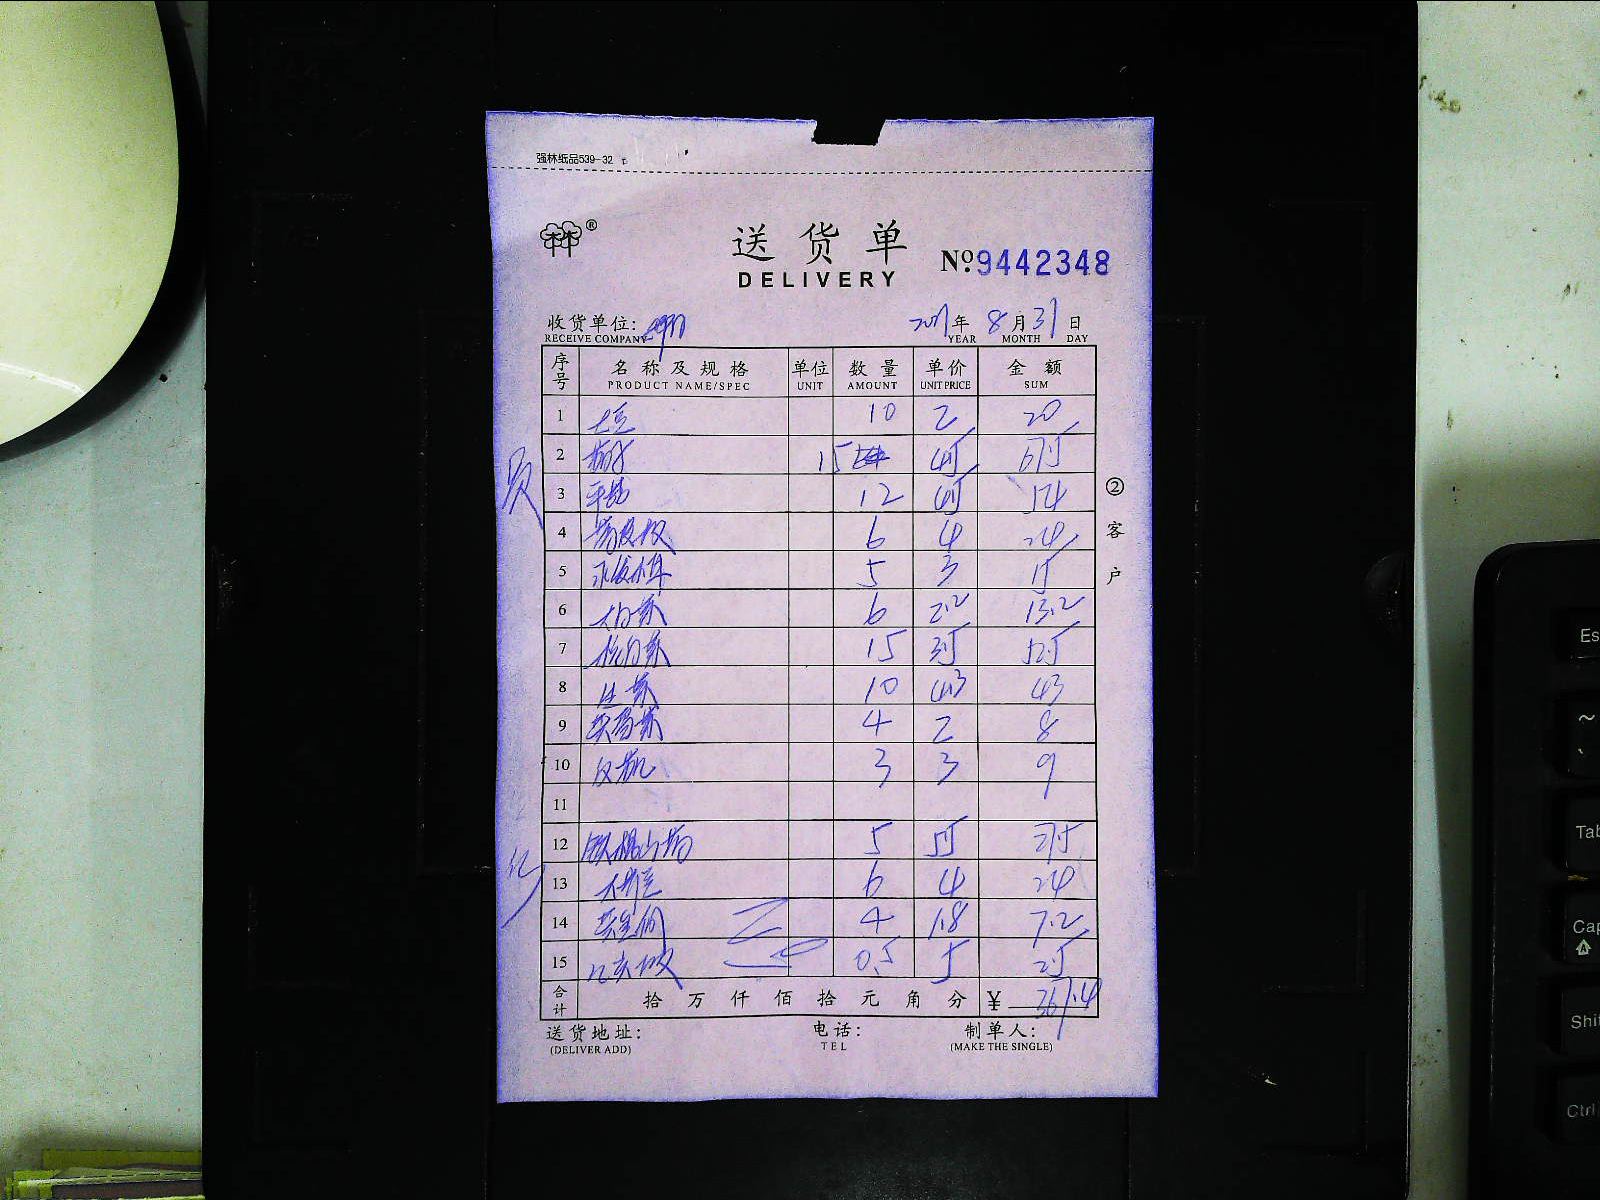 强林纸品539-32
®
送货单
DELIVERY
№ 9442348
收货单位:
RECEIVE COMPANY
年 8月31日
YEAR MONTH DAY
序号 名称及规格 单位 数量 单价 金额
PRODUCT NAME/SPEC UNIT AMOUNT UNIT PRICE SUM
1 土豆 10 2 20
2 15 4.5 67.5
3 平菇 12 4.5 54
4 6 4 24
5 水发木耳 5 3 15
6 大白菜 6 2.2 13.2
7 15 3.5 52.5
8 生菜 10 4.3 43
9 4 2 8
10 3 3 9
11
12 铁棍山药 5 5.5 27.5
13 6 4 24
14 4 1.8 7.2
15 0.5 5 2.5
合计 拾 万 仟 佰 拾 元 角 分 ¥ 367.4
②客户
送货地址: 电话: 制单人:
(DELIVER ADD) TEL (MAKE THE SINGLE)
Es
~
Tab
Cap
Shi
Ctrl